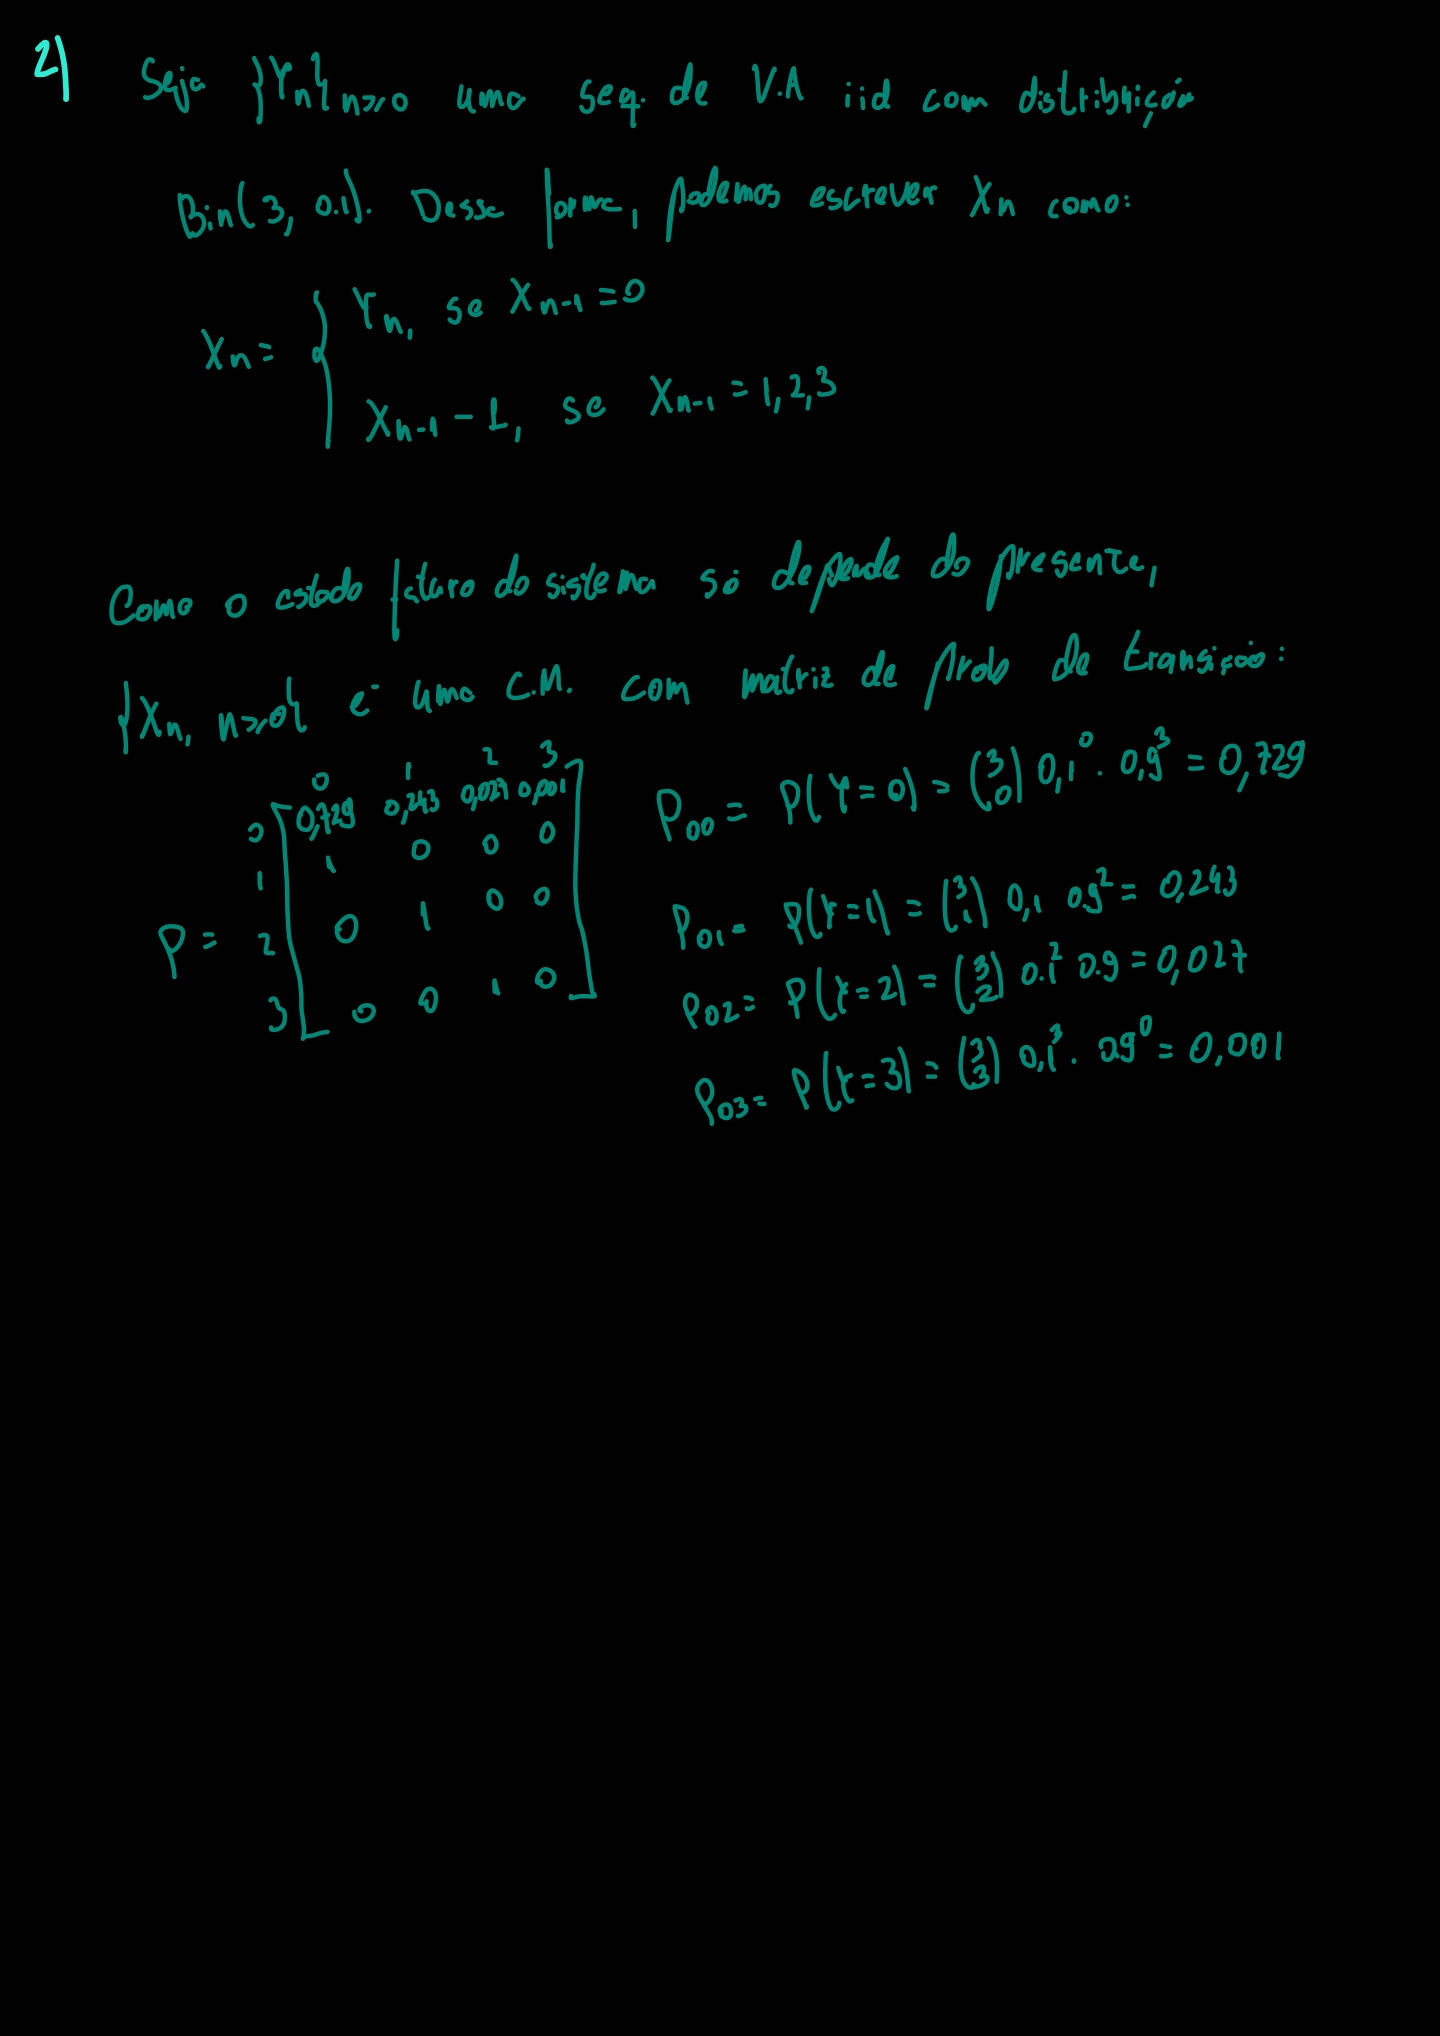 2)
Seja {Yn}n≥0 uma seq. de V.A iid com distribuição
Bin(3, 0.1). Dessa forma, podemos escrever Xn como:
Xn = { Yn, se Xn-1 = 0
Xn-1 - 1, se Xn-1 = 1,2,3
Como o estado futuro do sistema só depende do presente,
{Xn, n≥0} é uma C.M. com matriz de prob de transição:
0 1 2 3
0 [0,729 0,243 0,027 0,001]
1 1 0 0 0
P = 2 0 1 0 0
3 0 0 1 0
P00 = P(Y=0) = (3 0) 0,1^0 . 0,9^3 = 0,729
P01 = P(Y=1) = (3 1) 0,1 0.9^2 = 0,243
P02 = P(Y=2) = (3 2) 0.1^2 0.9 = 0,027
P03 = P(Y=3) = (3 3) 0,1^3 . 0.9^0 = 0,001